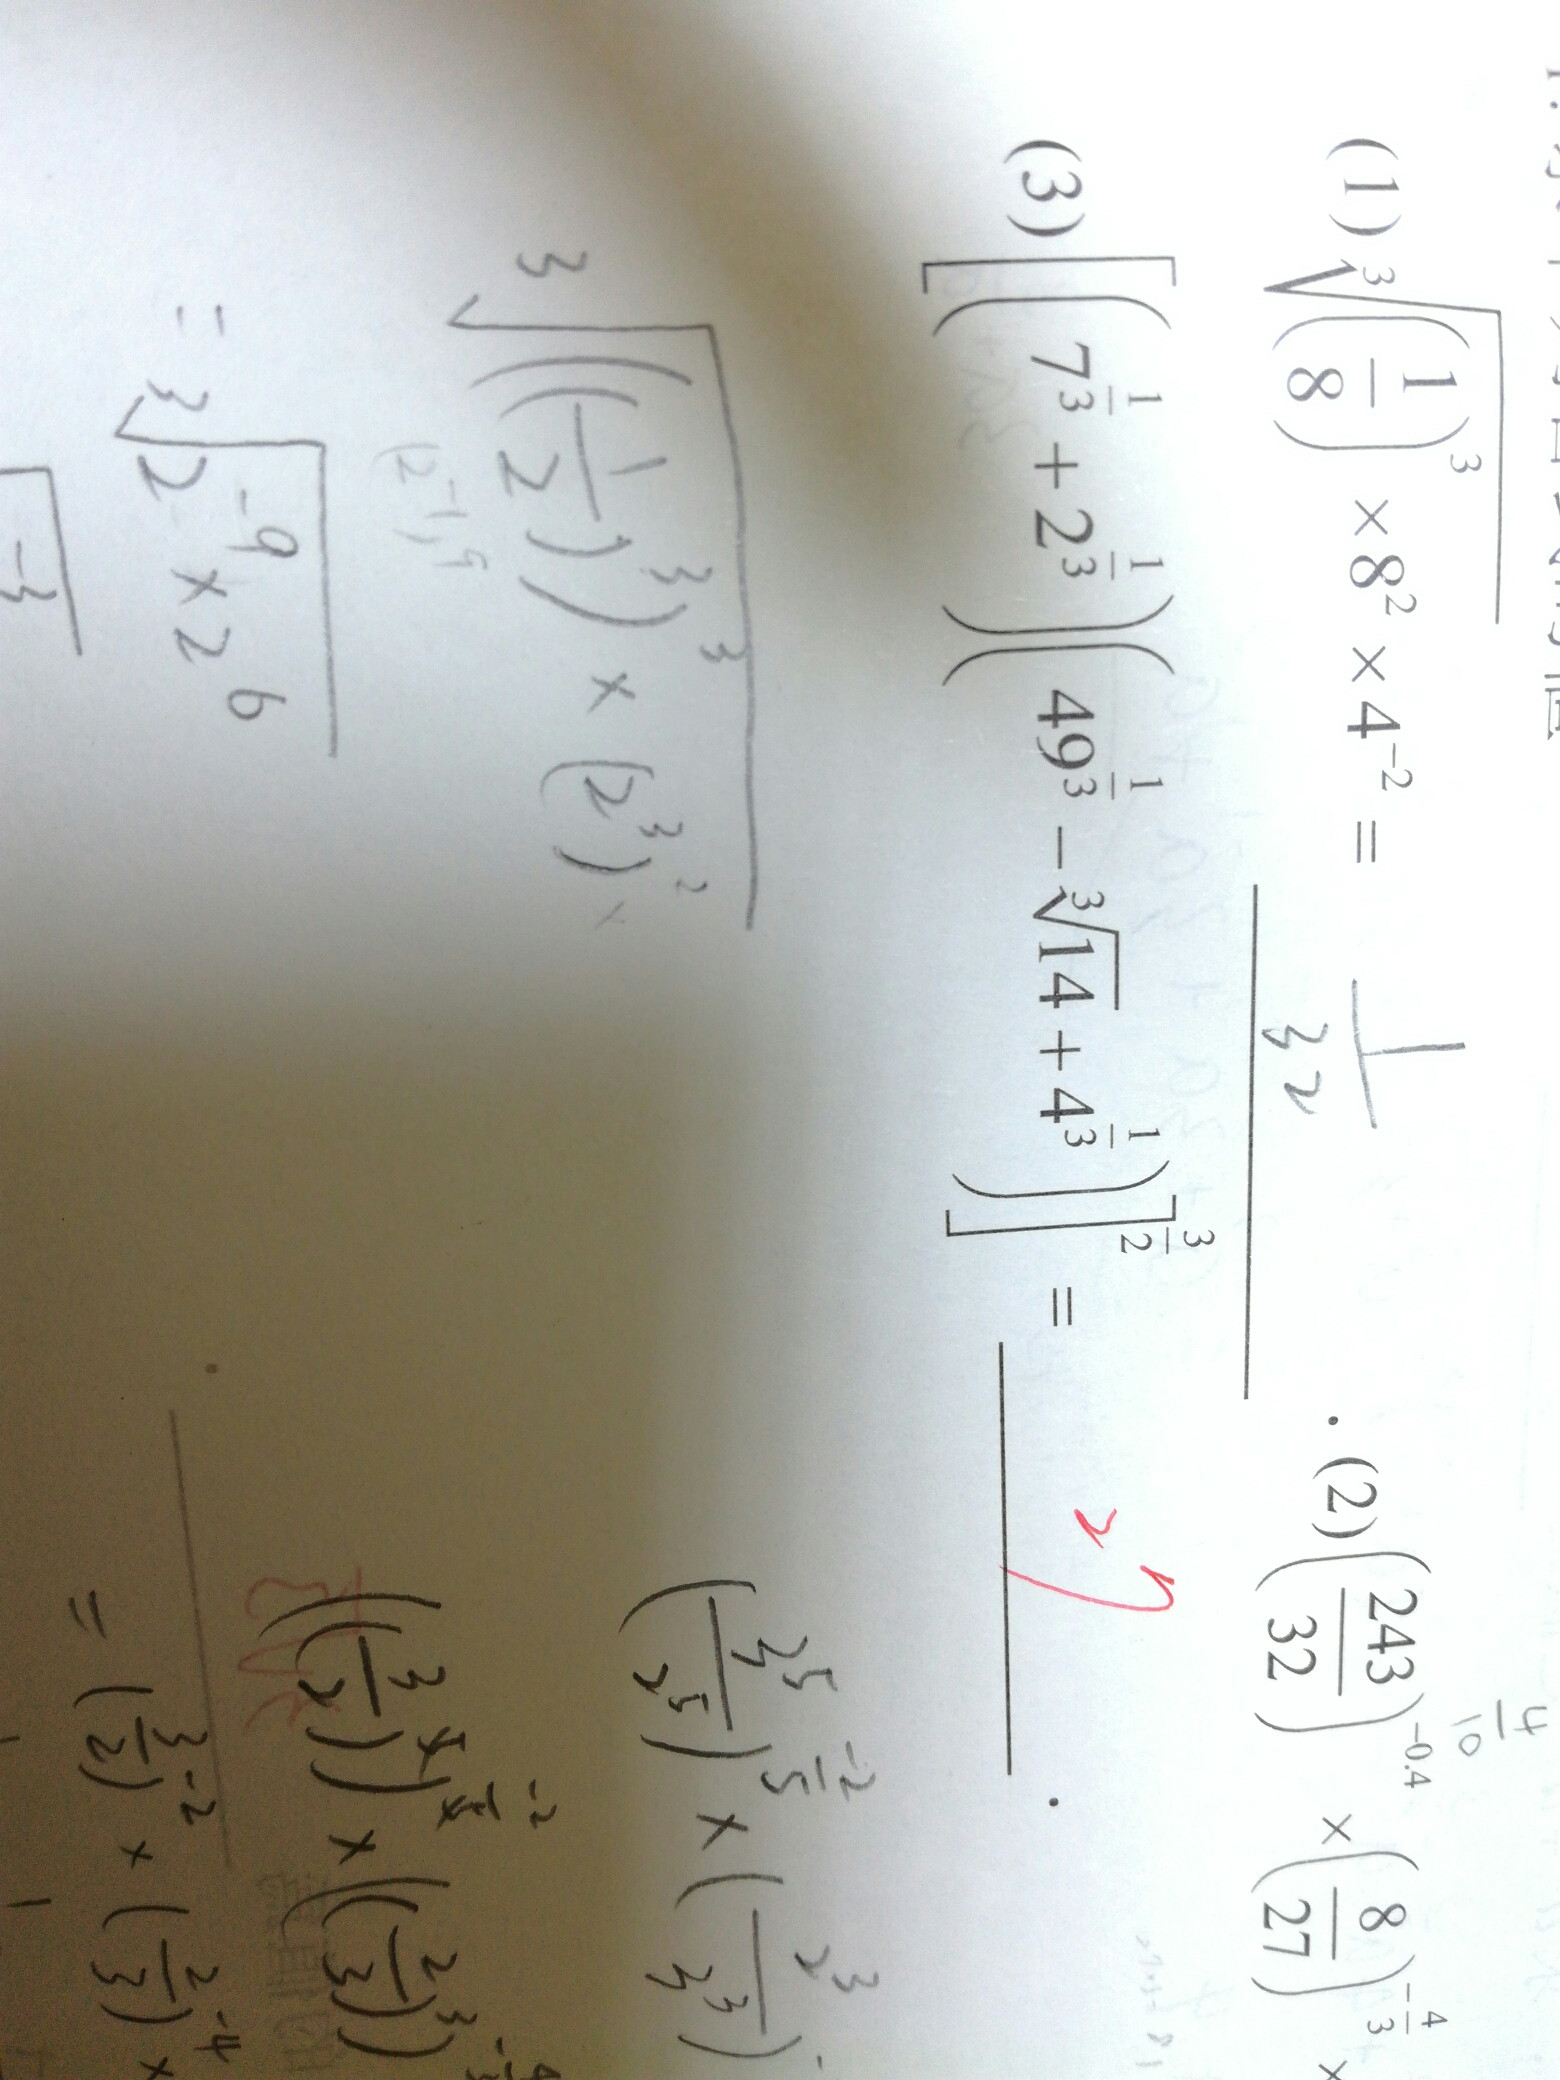 (1) ∛(1/8)³ × 8² × 4⁻² = 1/32 . (2) (243/32)^(-0.4) × (8/27)^(-4/3) ×
4/10
(3) [(7^(1/3) + 2^(1/3))(49^(1/3) − ∛14 + 4^(1/3))]^(3/2) = 27 .
∛((1/2)³)³ × (2³)² ×
(2⁻¹)⁹
= ∛2⁻⁹ × 2⁶
-3
(3⁵/2⁵)^(-2/5) × (2³/3³)
((3/2)) × ((2/3)³)
= (3/2)⁻² × (2/3)⁻⁴ ×